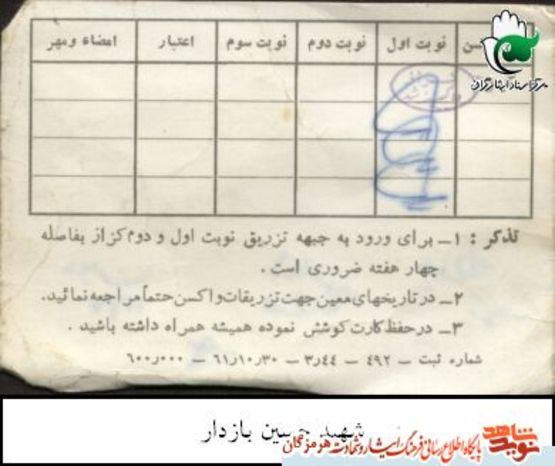 سن | نوبت اول | نوبت دوم | نوبت سوم | اعتبار | امضاء ومهر
مرکز اسناد ایثارگران
تذکر : ۱ــ برای ورود به جبهه تزریق نوبت اول و دوم کزاز بفاصله
چهار هفته ضروری است .
۲ــ در تاریخهای معین جهت تزریقات واکسن حتماً مراجعه نمائید.
۳ــ در حفظ کارت کوشش نموده همیشه همراه داشته باشید .
شماره ثبت ــ ۴۹۲ ــ ۳٫۴۴ ــ ۶۱٫۱۰٫۳۰ ــ ۶۰۰٫۰۰۰
شهید حسین بازدار
نوید شاهد پایگاه اطلاع رسانی فرهنگ ایثار و شهادت هرمزگان